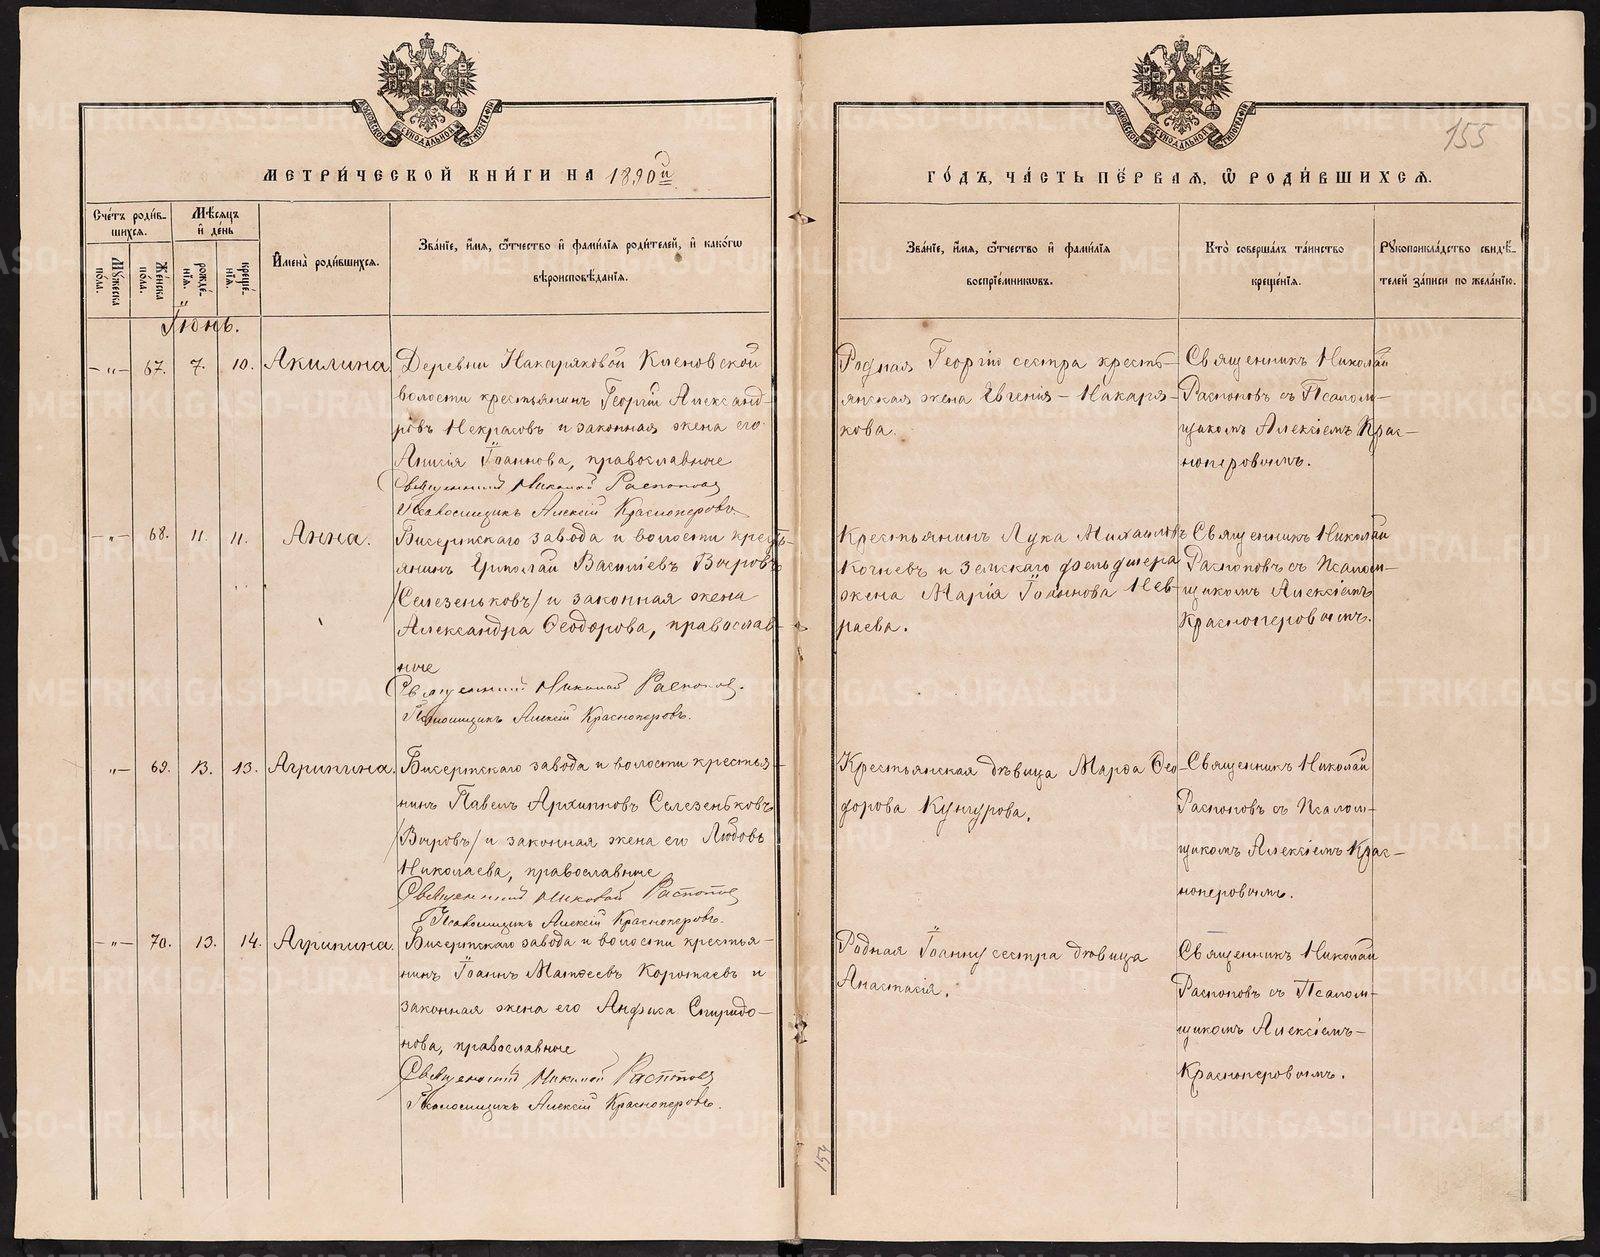 МОСКОВСКОЙ СѴНОДАЛЬНОЙ ТИПОГРАФІИ
МЕТРИ́ЧЕСКОЙ КНИ́ГИ НА 1890й
Сче́тъ роди́в-
шихсѧ.
Мꙋ́жеска по́ла.
Же́нска по́ла.
Мѣ́сѧцъ и҆ де́нь
рожде́нїѧ.
креще́нїѧ.
И҆мена̀ роди́вшихсѧ.
Зва́нїе, и҆́мѧ, ѻ҆́тчество и҆ фами́лїѧ роди́телей, и҆ како́гѡ
вѣроисповѣ́данїѧ.
Іюнь.
—„— 67. 7. 10. Акилина.
Деревни Накаряковой Кленовской
волости крестьянинъ Георгій Александ-
ровъ Некрасовъ и законная жена его
Анисія Іоаннова, православные
Священникъ Николай Распоповъ
Псаломщикъ Алексій Красноперовъ
—„— 68. 11. 11. Анна.
Бисертскаго завода и волости кресть-
янинъ Ермолай Василіевъ Выровъ
/Селезеньковъ/ и законная жена
Александра Ѳеодорова, православ-
ные
Священникъ Николай Распоповъ.
Псаломщикъ Алексій Красноперовъ.
„— 69. 13. 13. Агрипина.
Бисертскаго завода и волости крестья-
нинъ Павелъ Архипповъ Селезеньковъ
/Выровъ/ и законная жена его Любовь
Николаева, православные
Священникъ Николай Распопов
Псаломщикъ Алексій Красноперовъ.
—„— 70. 13. 14. Агрипина.
Бисертскаго завода и волости крестья-
нинъ Іоаннъ Матѳеевъ Коротаевъ и
законная жена его Анфиса Спиридо-
нова, православные
Священникъ Николай Распопов
Псаломщикъ Алексій Красноперовъ.
154
МОСКОВСКОЙ СѴНОДАЛЬНОЙ ТИПОГРАФІИ
155
ГО́ДЪ, ЧА́СТЬ ПЕ́РВАЯ, Ѡ҆ РОДИ́ВШИХСѦ.
Зва́нїе, и҆́мѧ, ѻ҆́тчество и҆ фами́лїѧ
воспрїе́мникѡвъ.
Кто̀ соверша́лъ та́инство
креще́нїѧ.
Рꙋкоприкла́дство свидѣ́-
телей за́писи по жела́нїю.
Родная Георгію сестра кресть-
янская жена Евгенія – Накаря-
кова.
Священникъ Николай
Распоповъ съ Псалом-
щикомъ Алексіемъ Крас-
ноперовымъ.
Крестьянинъ Лука Михаиловъ
Кочневъ и Земскаго фельдшера
жена Марія Іоаннова Нев-
раева.
Священникъ Николай
Распоповъ съ Псалом-
щикомъ Алексіемъ
Красноперовымъ.
Крестьянская дѣвица Марѳа Ѳео-
дорова Кунгурова.
Священникъ Николай
Распоповъ съ Псалом-
щикомъ Алексіемъ Крас-
ноперовымъ.
Родная Іоанну сестра дѣвица
Анастасія.
Священникъ Николай
Распоповъ съ Псалом-
щикомъ Алексіемъ-
Красноперовымъ.
METRIKI.GASO-URAL.RU